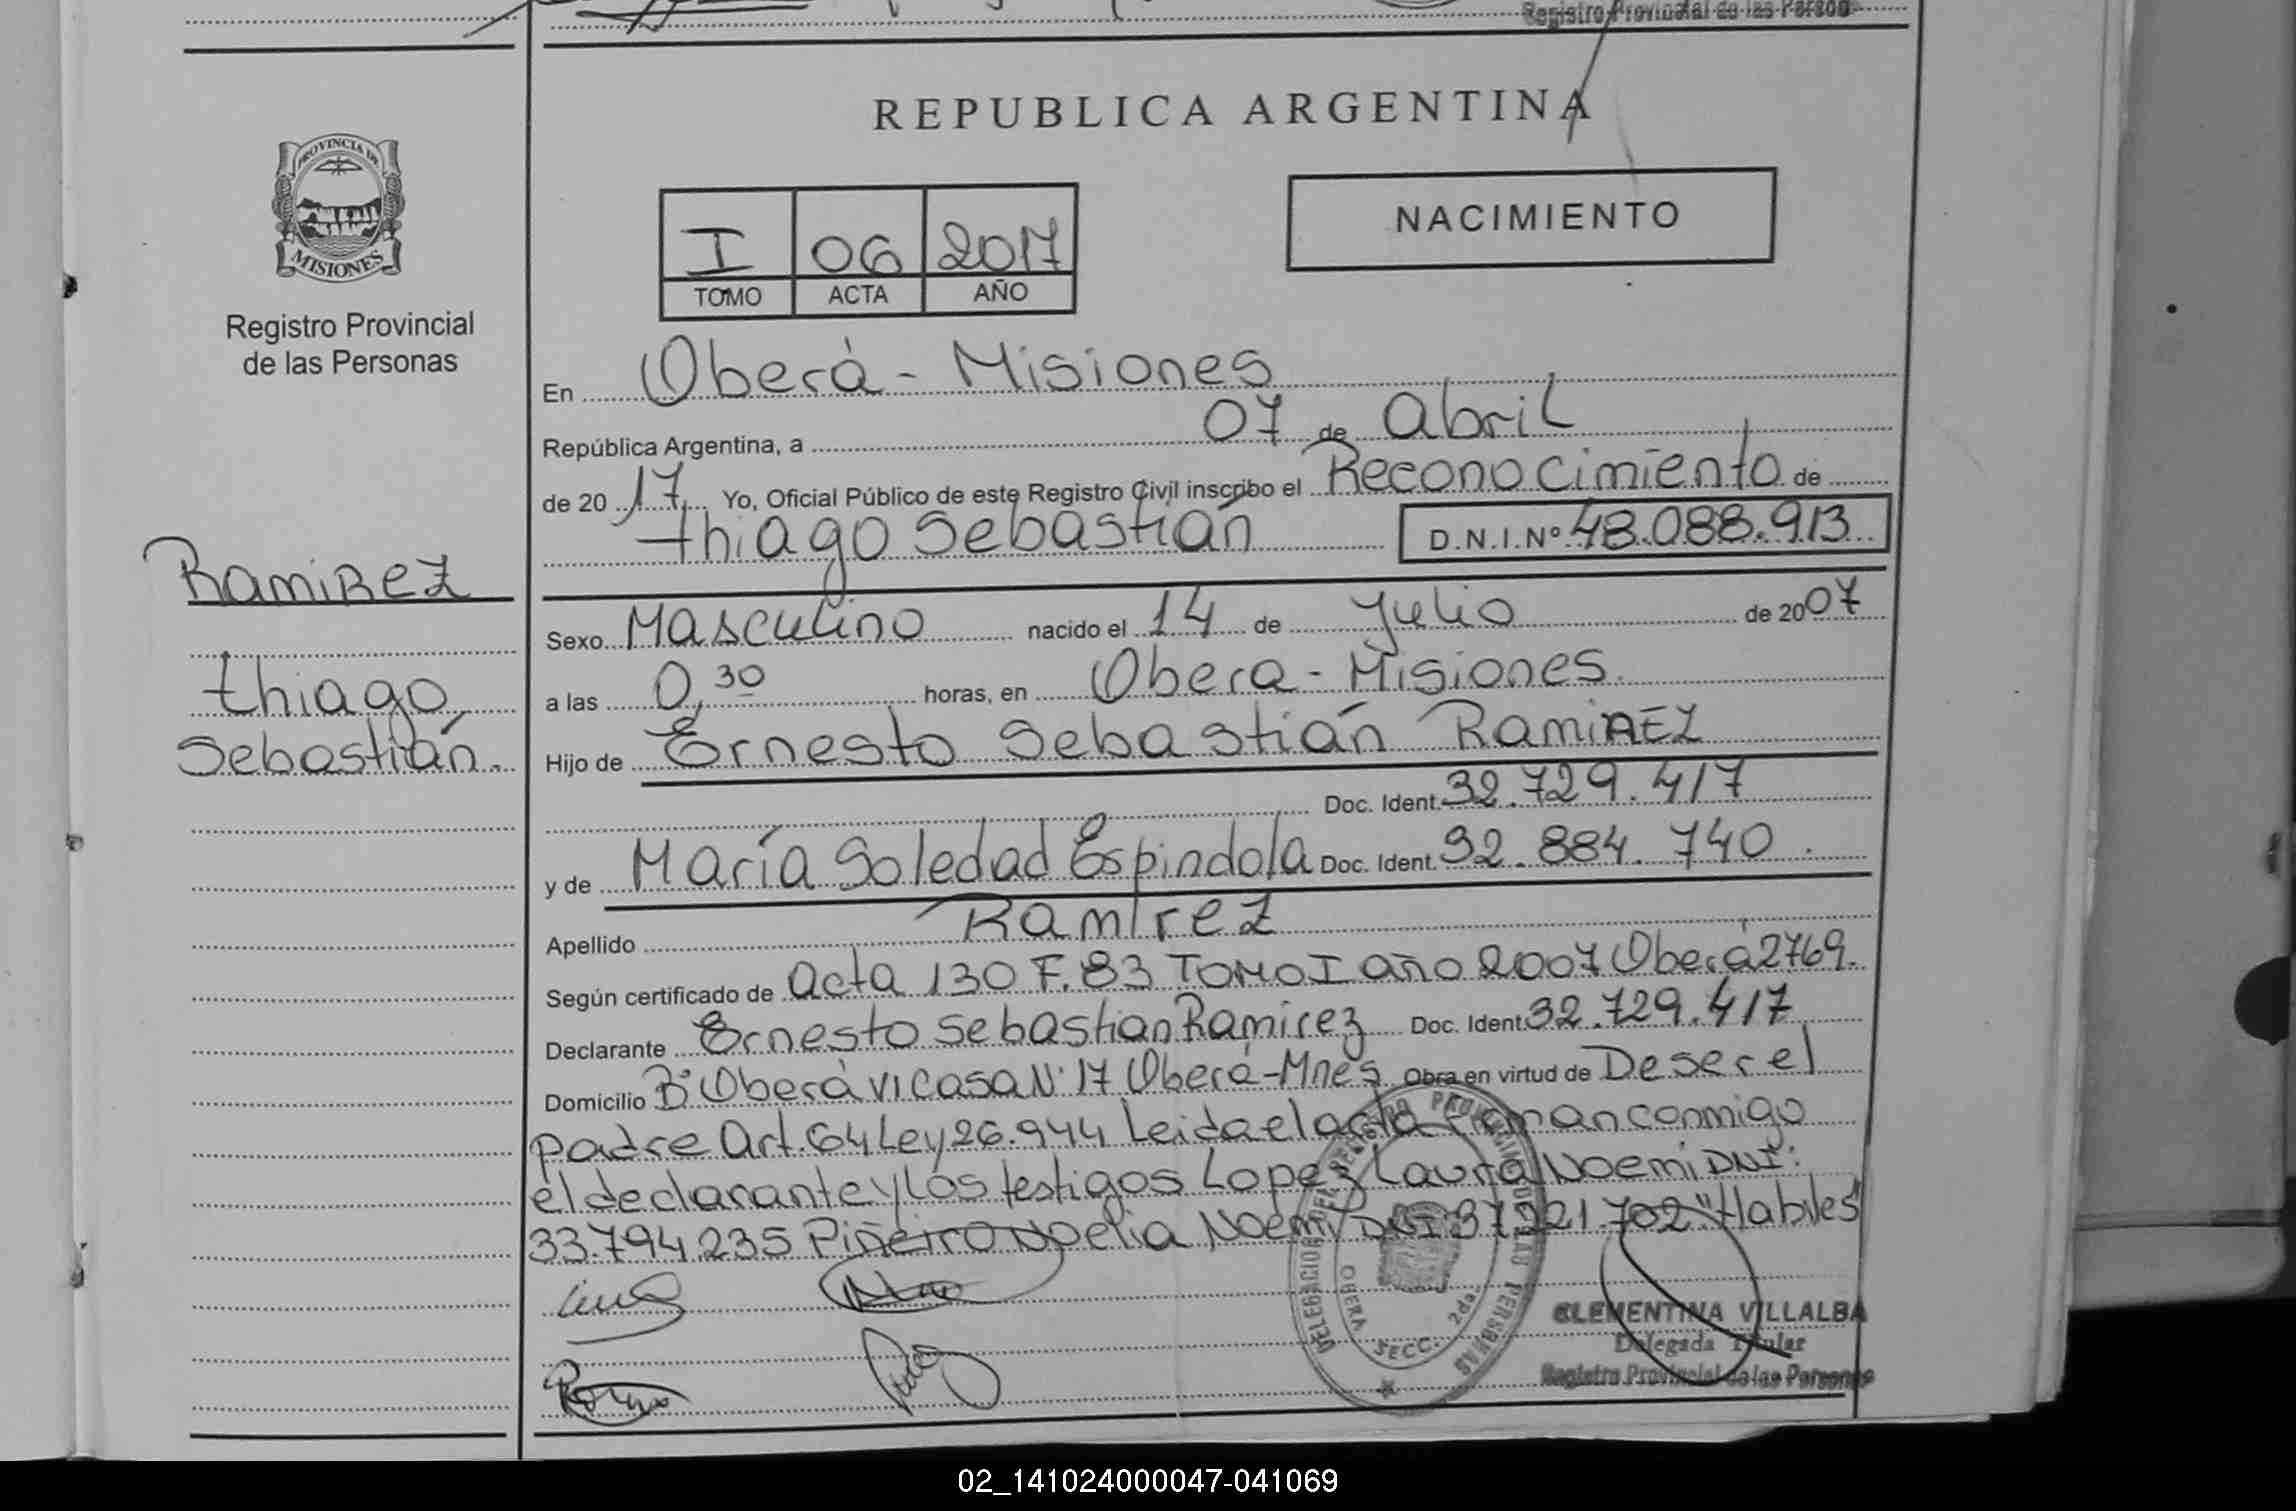 Registro Provincial de las Person
REPUBLICA ARGENTINA
PROVINCIA DE
MISIONES
Registro Provincial
de las Personas
NACIMIENTO
I 06 2017
TOMO ACTA AÑO
En Oberá - Misiones
República Argentina, a 07 de Abril
de 20 17 Yo, Oficial Público de este Registro Civil inscribo el Reconocimiento de
thiago Sebastián D.N.I.Nº 48.088.913
RamiRez
thiago
Sebastián.
Sexo Masculino nacido el 14 de Julio de 2007
a las 0,30 horas, en Obera - Misiones
Hijo de Ernesto Sebastián RamiREZ
Doc. Ident. 32.729.417
y de María Soledad Espindola Doc. Ident. 32.884.740.
Apellido Ramirez
Según certificado de acta 130 F.83 TOMO I año 2007 Oberá 2769.
Declarante Ernesto Sebastian Ramirez Doc. Ident. 32.729.417
Domicilio Bº Oberá VI casa Nº 17 Oberá-Mnes Obra en virtud de De ser el
padre Art. 64 Ley 26.944 Leida el acta firman conmigo
el declarante y los testigos Lopez Laura Noemi DNI:
33.794.235 Piñeiro Noelia Noemi DNI 37.221.702 "Habiles"
DELEGACION DEL REGISTRO PROVINCIAL DE LAS PERSONAS
OBERA SECC. 2da.
CLEMENTINA VILLALBA
Delegada Titular
Registro Provincial de las Personas
02_141024000047-041069